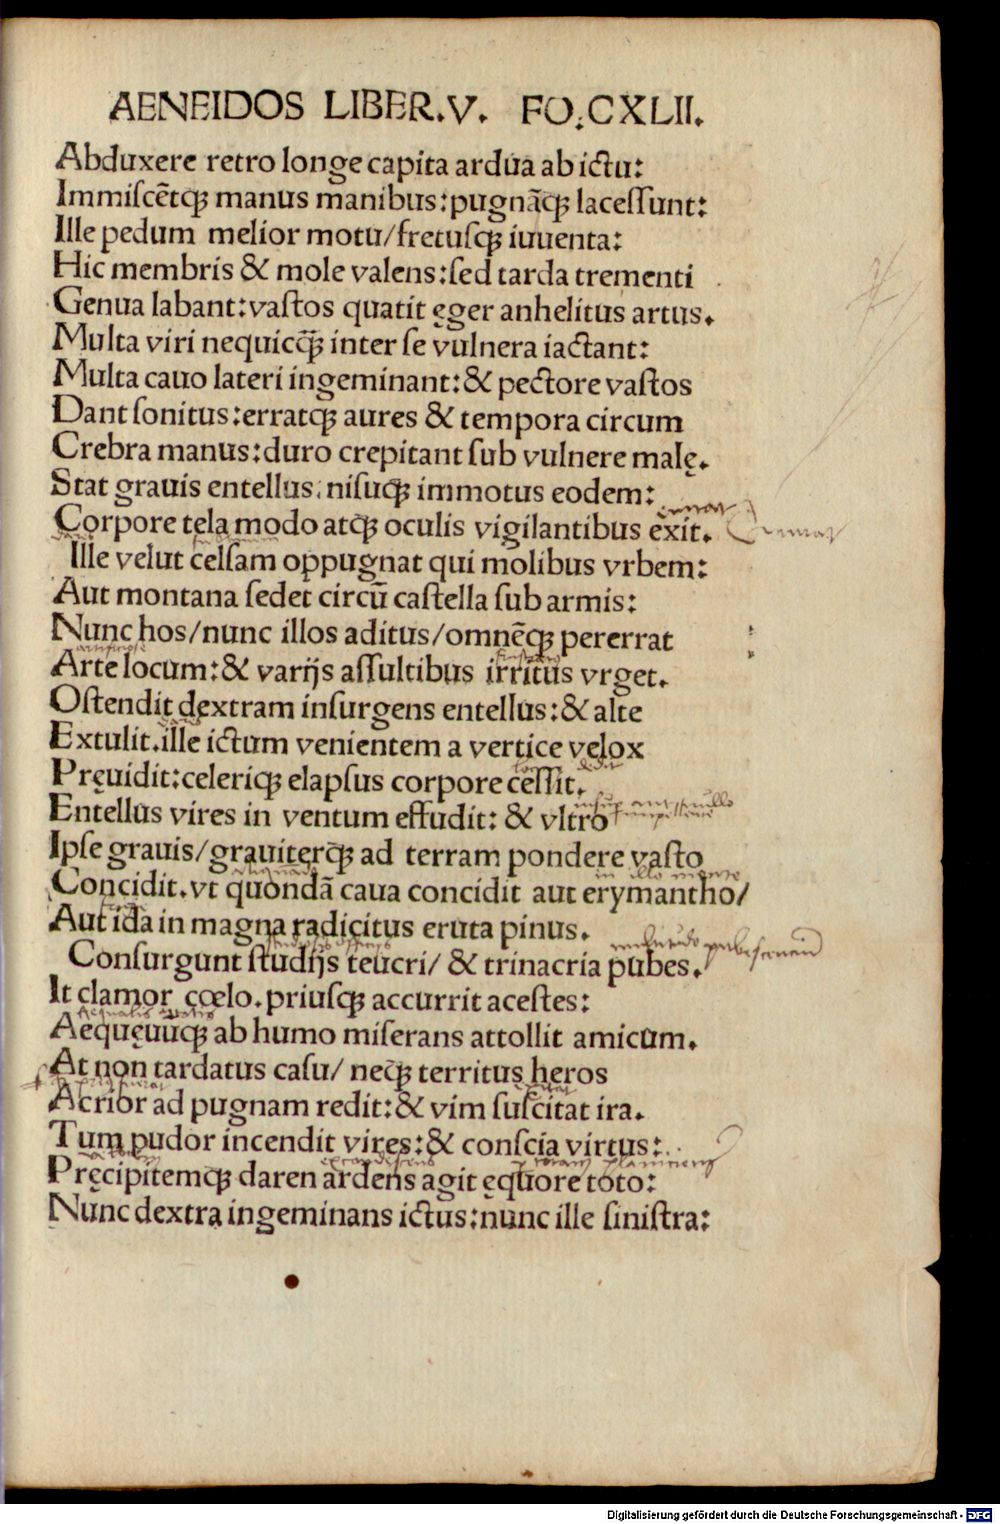 AENEIDOS LIBER.V. FO.CXLII.
Abduxere retro longe capita ardua ab ictu:
Immiscẽtqꝫ manus manibus:pugnãqꝫ lacessunt:
Ille pedum melior motu/fretusqꝫ iuuenta:
Hic membris & mole valens:sed tarda trementi
Genua labant:vastos quatit ęger anhelitus artus.
Multa viri nequicq̃ꝫ inter se vulnera iactant:
Multa cauo lateri ingeminant:& pectore vastos
Dant sonitus:erratqꝫ aures & tempora circum
Crebra manus:duro crepitant sub vulnere malę.
Stat grauis entellus.nisuqꝫ immotus eodem:
Corpore tela modo atqꝫ oculis vigilantibus exit.
Ille velut celsam oppugnat qui molibus vrbem:
Aut montana sedet circũ castella sub armis:
Nunc hos/nunc illos aditus/omnẽqꝫ pererrat
Arte locum:& varijs assultibus irritus vrget.
Ostendit dextram insurgens entellus:& alte
Extulit.ille ictum venientem a vertice velox
Pręuidit:celeriqꝫ elapsus corpore cessit.
Entellus vires in ventum effudit: & vltro
Ipse grauis/grauiterqꝫ ad terram pondere vasto
Concidit.vt quondã caua concidit aut erymantho/
Aut ida in magna radicitus eruta pinus.
Consurgunt studijs teucri/ & trinacria pubes.
It clamor cœlo.priusqꝫ accurrit acestes:
Aequęuuqꝫ ab humo miserans attollit amicum.
At non tardatus casu/ neqꝫ territus heros
Acrior ad pugnam redit:& vim suscitat ira.
Tum pudor incendit vires:& conscia virtus:
Pręcipitemqꝫ daren ardens agit ęquore toto:
Nunc dextra ingeminans ictus:nunc ille sinistra:
Digitalisierung gefördert durch die Deutsche Forschungsgemeinschaft - DFG